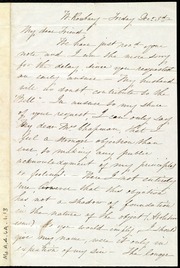 W. Roxbury - Friday Dec. 5th
My dear Friend,
We have just got your
note and I am the more sorry
for the delay since you requested
an early answer - My husband
will no doubt contribute to the
"Bell". In answer to my share
of your request I can only say
my dear Mrs Chapman, that I
feel a stronger objection than
ever to making any public
acknowledgment of my principles
or feelings - I am most entirely
conscious that this objection
has not a shadow of foundation
in the nature of the object
If you would imply I should
give my name, were it only in
expiation of my sin - The longer